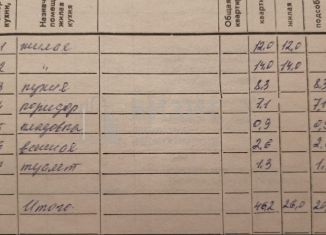 кухни,
Назнач
помеще
жилая
кухня
Общая
квартир
кварти
жилая
подсобн
1 жилая 12,0 12,0
2 " 14,0 14,0
кухня 8.3 8.3
коридор 7.1 7.1
кладовка 0,9 0,9
ванная 2,6 2.
туалет 1.3 1.
Итого 46,2 26,0 20